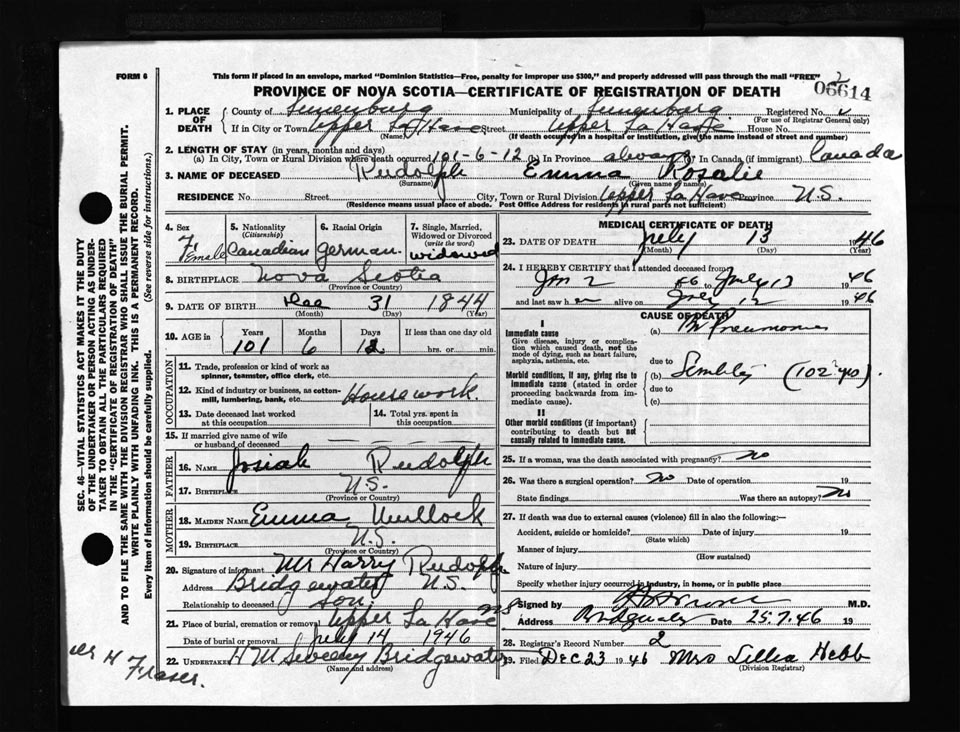 FORM 6
This form if placed in an envelope, marked "Dominion Statistics—Free, penalty for improper use $300," and properly addressed will pass through the mail "FREE" 2
PROVINCE OF NOVA SCOTIA—CERTIFICATE OF REGISTRATION OF DEATH 06614
1. PLACE OF DEATH County of Lunenburg Municipality of Lunenburg Registered No.
(For use of Registrar General only)
If in City or Town Upper LaHave Street Upper LaHave House No.
(Name) (If death occurred in a hospital or institution, give the name instead of street and number)
2. LENGTH OF STAY (in years, months and days)
(a) In City, Town or Rural Division where death occurred 101-6-12 (b) In Province always In Canada (if immigrant) Canada
3. NAME OF DECEASED Rudolph Emma Rosalie
(Surname) (Given name or names)
RESIDENCE No. Street City, Town or Rural Division Upper La Have Province N.S.
(Residence means usual place of abode. Post Office Address for residents in rural parts not sufficient)
4. Sex Female
5. Nationality (Citizenship) Canadian
6. Racial Origin German
7. Single, Married, Widowed or Divorced (write the word) widowed
8. BIRTHPLACE Nova Scotia
(Province or Country)
9. DATE OF BIRTH Dec 31 1844
(Month) (Day) (Year)
10. AGE in Years Months Days If less than one day old
101 6 12 hrs. or min.
OCCUPATION
11. Trade, profession or kind of work as spinner, teamster, office clerk, etc.
12. Kind of industry or business, as cotton-mill, lumbering, bank, etc. Housework.
13. Date deceased last worked at this occupation
14. Total yrs. spent in this occupation
15. If married give name of wife or husband of deceased
FATHER
16. Name Josiah Rudolph
17. Birthplace N.S.
(Province or Country)
MOTHER
18. Maiden Name Emma
19. Birthplace N.S.
(Province or Country)
20. Signature of informant Mr Harry Rudolph
Address Bridgewater N.S.
Relationship to deceased son
21. Place of burial, cremation or removal Upper La Have NS
Date of burial or removal July 14 1946
22. Undertaker H M Sweeney Bridgewater
(Name and address)
MEDICAL CERTIFICATE OF DEATH
23. DATE OF DEATH July 13 1946
(Month) (Day) (Year)
24. I HEREBY CERTIFY that I attended deceased from
Jan 2 46 to July 13 1946
and last saw her alive on July 12 1946
CAUSE OF DEATH
I
Immediate cause (a) Br Pneumonia
Give disease, injury or complication which caused death, not the mode of dying, such as heart failure, asphyxia, asthenia, etc.
due to
Morbid conditions, if any, giving rise to immediate cause (stated in order proceeding backwards from immediate cause). (b) Senility (102 yo).
due to
(c)
II
Other morbid conditions (if important) contributing to death but not causally related to immediate cause.
25. If a woman, was the death associated with pregnancy? no
26. Was there a surgical operation? no Date of operation 19
State findings Was there an autopsy? no
27. If death was due to external causes (violence) fill in also the following:—
Accident, suicide or homicide? Date of injury 19
(State which)
Manner of injury
(How sustained)
Nature of injury
Specify whether injury occurred in industry, in home, or in public place
Signed by M.D.
Address Bridgewater Date 25.7.46 19
28. Registrar's Record Number 2
29. Filed Dec 23 1946 Mrs Lillia Hebb
(Division Registrar)
SEC. 46—VITAL STATISTICS ACT MAKES IT THE DUTY
OF THE UNDERTAKER OR PERSON ACTING AS UNDER-
TAKER TO OBTAIN ALL THE PARTICULARS REQUIRED
IN THE "CERTIFICATE OF REGISTRATION OF DEATH"
AND TO FILE THE SAME WITH THE DIVISION REGISTRAR WHO SHALL ISSUE THE BURIAL PERMIT.
WRITE PLAINLY WITH UNFADING INK. THIS IS A PERMANENT RECORD.
Every item of information should be carefully supplied. (See reverse side for instructions.)
H Fraser.